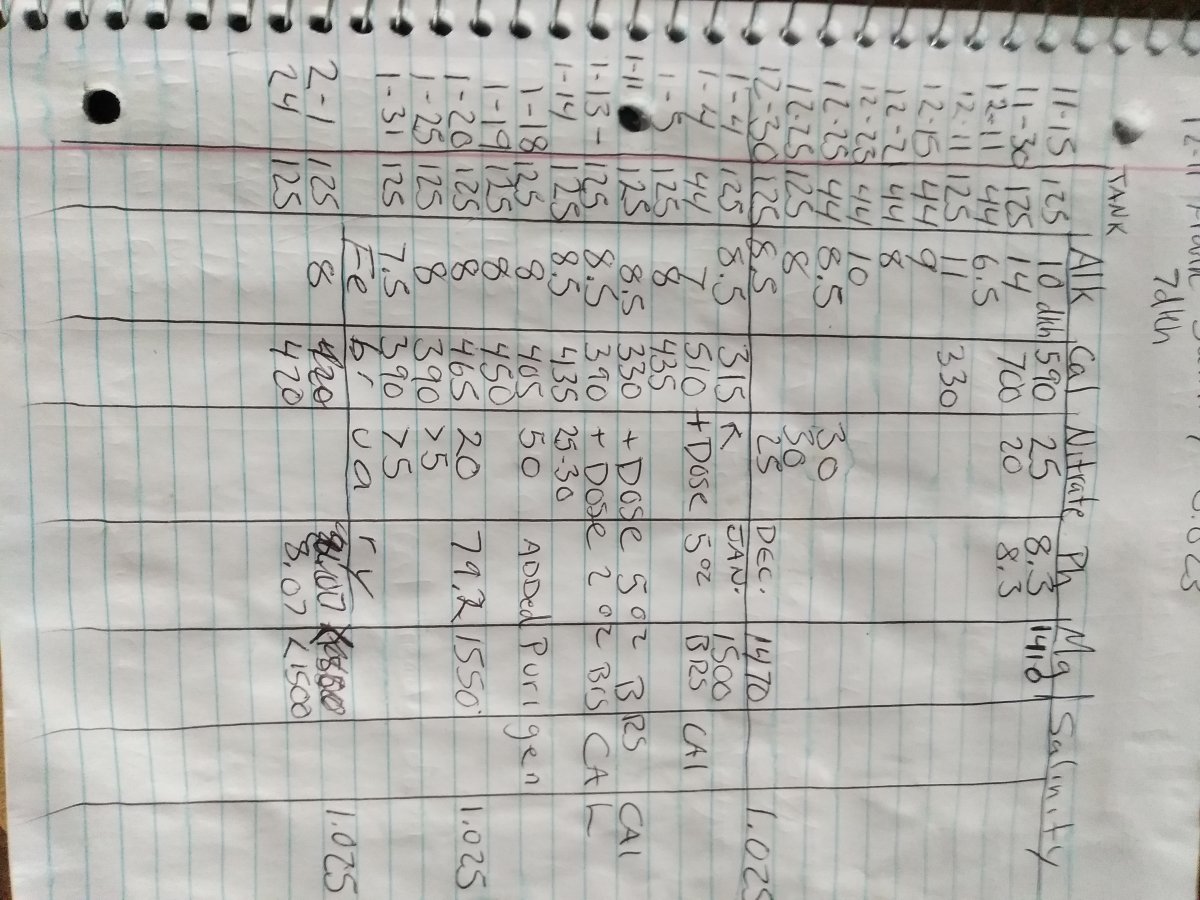 7dkh
TANK Alk Cal Nitrate Ph Mg Salinity
11-15 125 10 dkh 590 25 8.3 1410
11-30 125 14 700 20 8.3
12-11 44 6.5
12-11 125 11 330
12-15 44 9
12-21 44 8
12-23 44 10
12-25 44 8.5 30
12-25 125 8 30
12-30 125 8.5 25 DEC. 1470 1.025
1-4 125 8.5 315 JAN. 1500
1-4 44 7 510 + Dose 5 oz BRS CAl
1-5 125 8 435
1-11 125 8.5 330 + Dose 5 oz BRS CAl
1-13 - 125 8.5 390 + Dose 2 oz BRS CAL
1-14 125 8.5 435 25-30
1-18 125 8 465 50 ADDed Purigen
1-19 125 8 450
1-20 125 8 465 20 79.2 1550 1.025
1-25 125 8 390 >5
1-31 125 7.5 390 >5
February
2-1 125 8 1.025
24 125 470 8.07 <1500